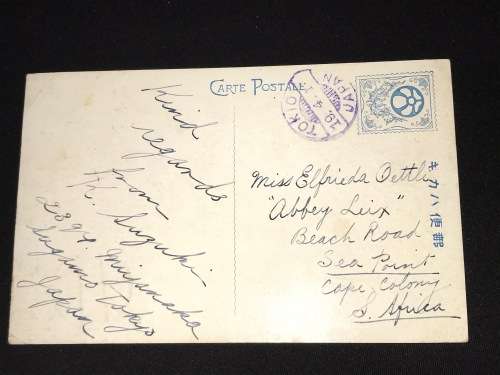 CARTE POSTALE
TOKIO
19. 4.
JAPAN
Kind
regards
from
Fr. Suzuki
2894. Miyanaka
Sugamo Tokyo
Japan
Miss Elfrieda Oettle
"Abbey Leix"
Beach Road
Sea Point
Cape Colony
S. Africa
キカハ便郵